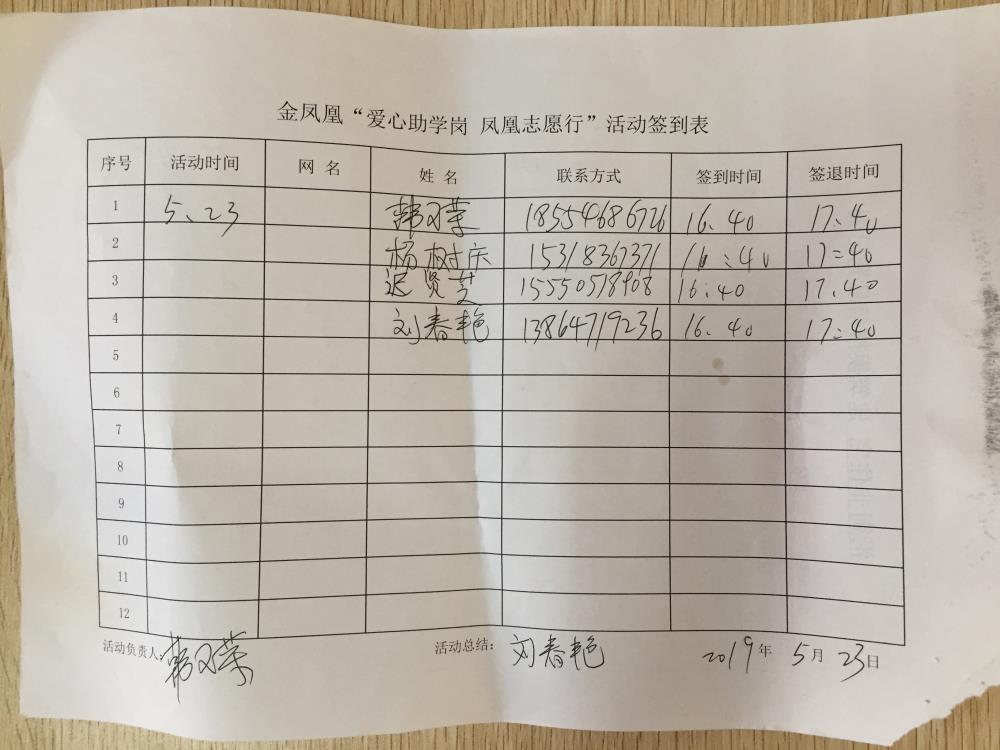 金凤凰“爱心助学岗 凤凰志愿行”活动签到表
序号 活动时间 网 名 姓 名 联系方式 签到时间 签退时间
1 5、23 韩习荣 18554686726 16.40 17:40
2 杨树庆 15318367371 16:40 17:40
3 迟贤芝 15550578908 16.40 17.40
4 刘春艳 13864719236 16.40 17:40
5
6
7
8
9
10
11
12
活动负责人：韩习荣 活动总结：刘春艳 2019年 5月 23日